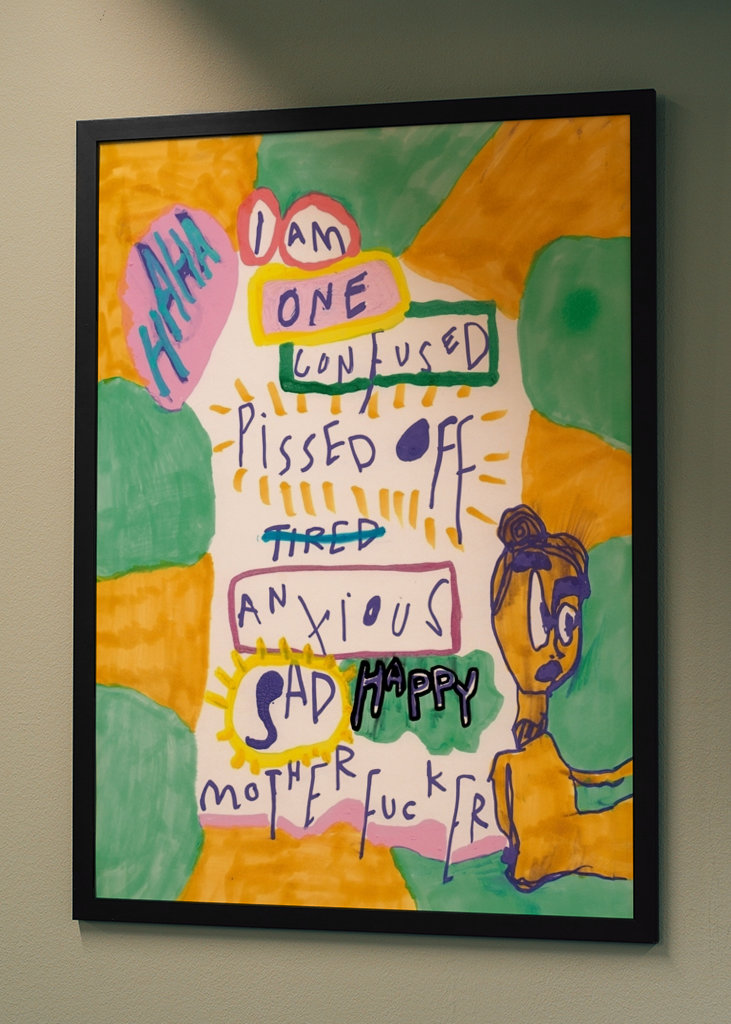 HAHAHA
I AM
ONE
CONFUSED
PISSED OFF
TIRED
ANXIOUS
SAD HAPPY
MOTHERFUCKER